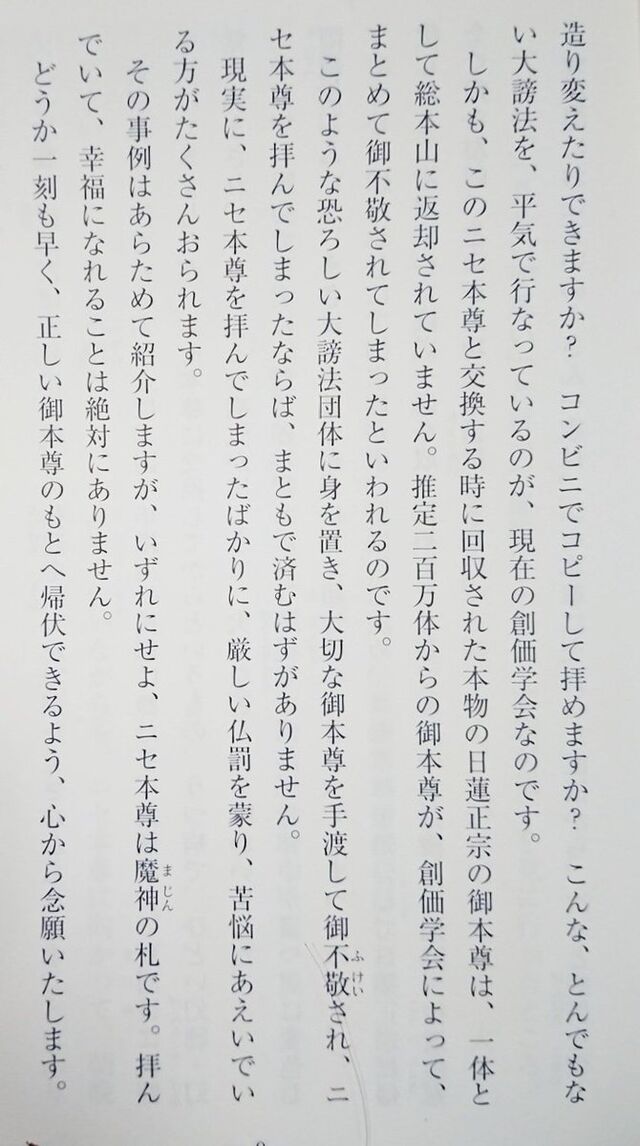 造り変えたりできますか？　コンビニでコピーして拝めますか？　こんな、とんでもな
い大謗法を、平気で行なっているのが、現在の創価学会なのです。
　しかも、このニセ本尊と交換する時に回収された本物の日蓮正宗の御本尊は、一体と
して総本山に返却されていません。推定二百万体からの御本尊が、創価学会によって、
まとめて御不敬されてしまったといわれるのです。
　このような恐ろしい大謗法団体に身を置き、大切な御本尊を手渡して御不敬され、ニ
セ本尊を拝んでしまったならば、まともで済むはずがありません。
　現実に、ニセ本尊を拝んでしまったばかりに、厳しい仏罰を蒙り、苦悩にあえいでい
る方がたくさんおられます。
　その事例はあらためて紹介しますが、いずれにせよ、ニセ本尊は魔神の札です。拝ん
でいて、幸福になれることは絶対にありません。
　どうか一刻も早く、正しい御本尊のもとへ帰伏できるよう、心から念願いたします。